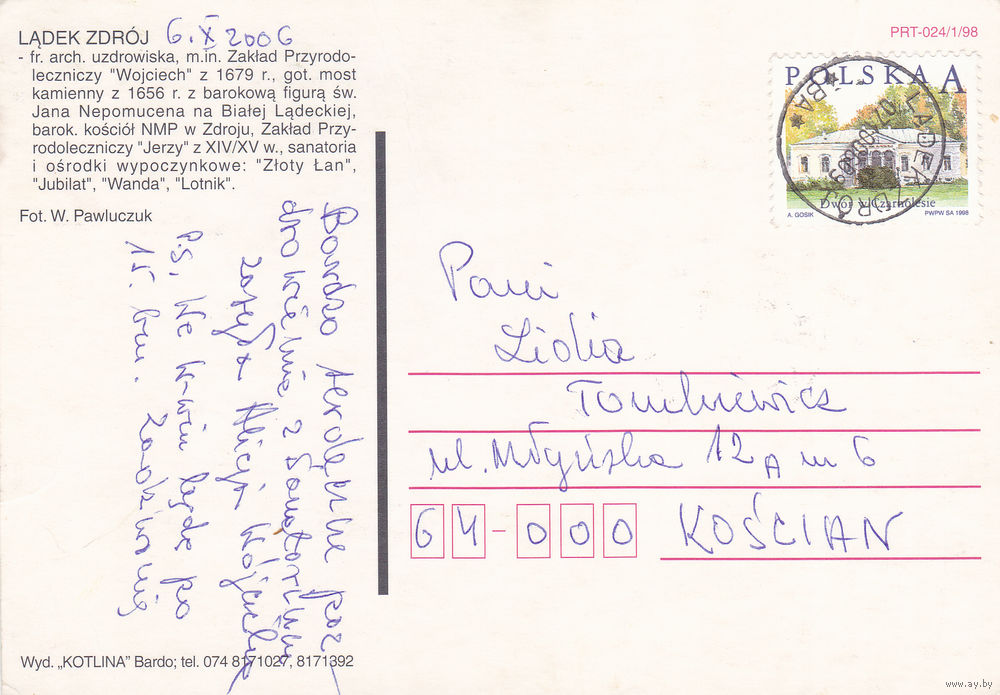 LĄDEK ZDRÓJ 6.X 2006
- fr. arch. uzdrowiska, m.in. Zakład Przyrodo-
leczniczy "Wojciech" z 1679 r., got. most
kamienny z 1656 r. z barokową figurą św.
Jana Nepomucena na Białej Lądeckiej,
barok. kościół NMP w Zdroju, Zakład Przy-
rodoleczniczy "Jerzy" z XIV/XV w., sanatoria
i ośrodki wypoczynkowe: "Złoty Łan",
"Jubilat", "Wanda", "Lotnik".
Fot. W. Pawluczuk
Bardzo serdeczne poz-
drowienia z Sanatorium
zasyła Alicja
P.S. We będę po
15. bm.
Wyd. „KOTLINA" Bardo; tel. 074 8171027, 8171392
PRT-024/1/98
POLSKA A
Dwór w Czarnolesie
A. GOSIK PWPW SA 1998
LĄDEK ZDRÓJ
* BA *
Pani
Lidia
Tomkiewicz
ul. Młyńska 12A m 6
64-000 KOŚCIAN
www.ay.by